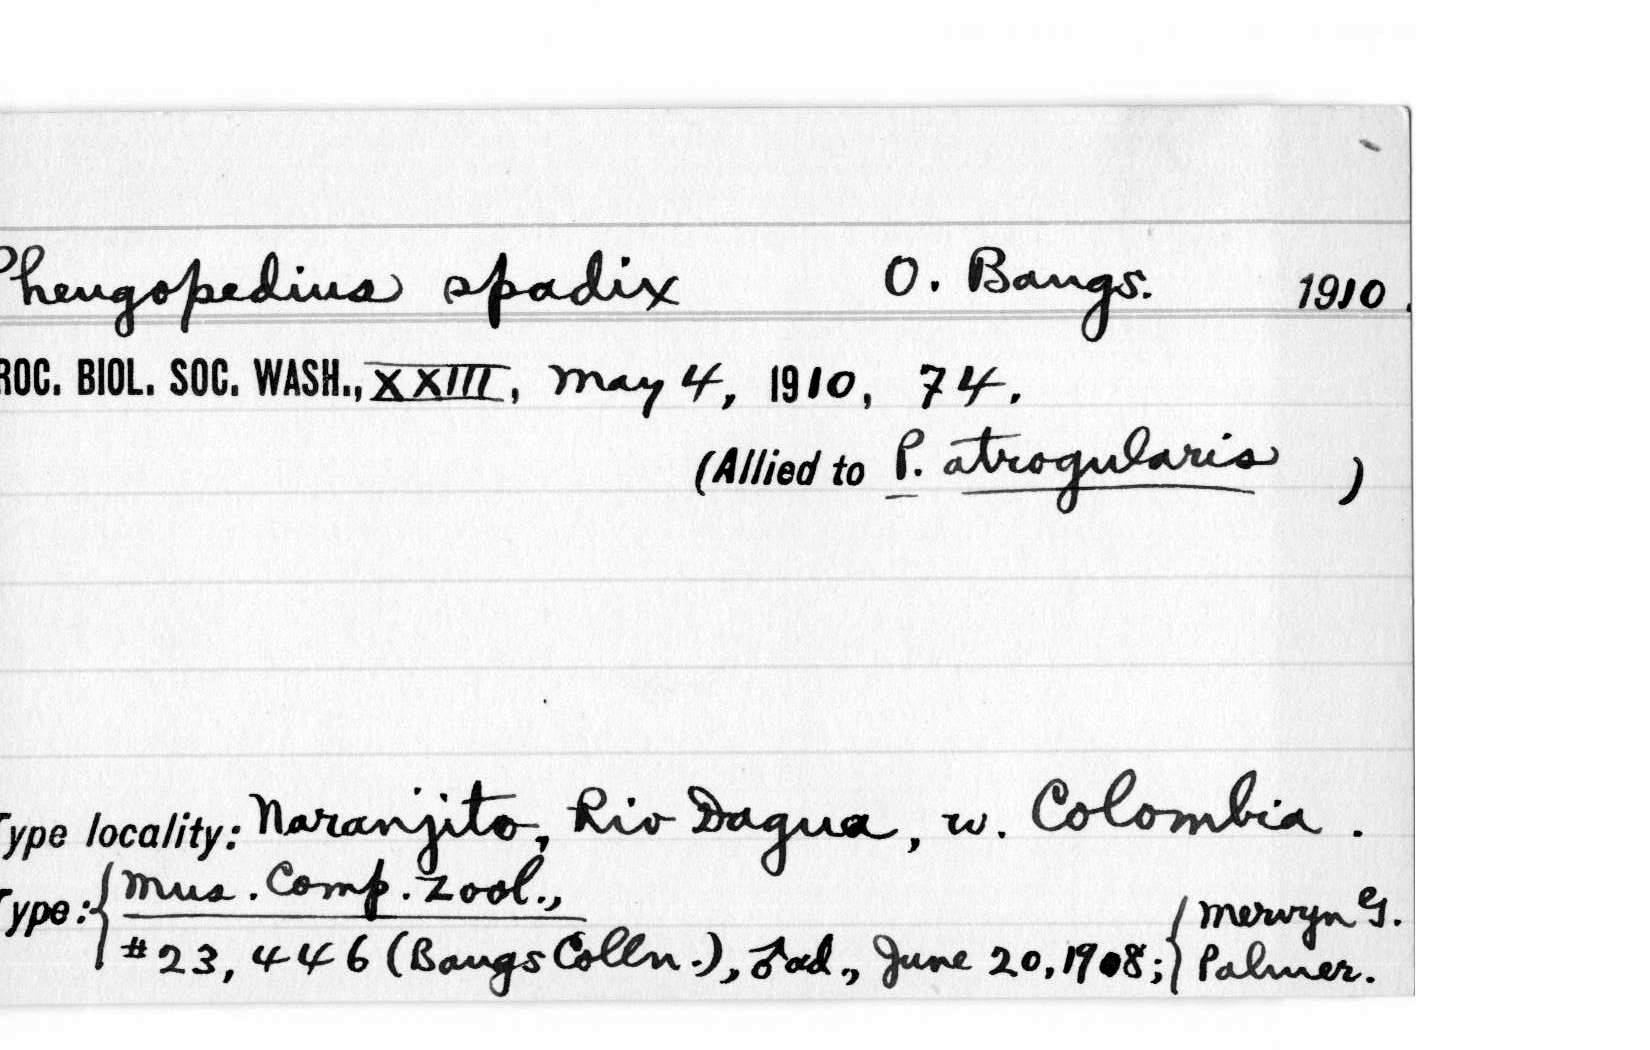 Pheugopedius spadix O. Bangs. 1910.
ROC. BIOL. SOC. WASH., XXIII, May 4, 1910, 74.
(Allied to P. atrogularis )
Type locality: Naranjito, Rio Dagua, w. Colombia.
Type: { Mus. Comp. Zool.,
#23,446 (Bangs Colln.), ♂ ad., June 20, 1908; { Mervyn G.
Palmer.